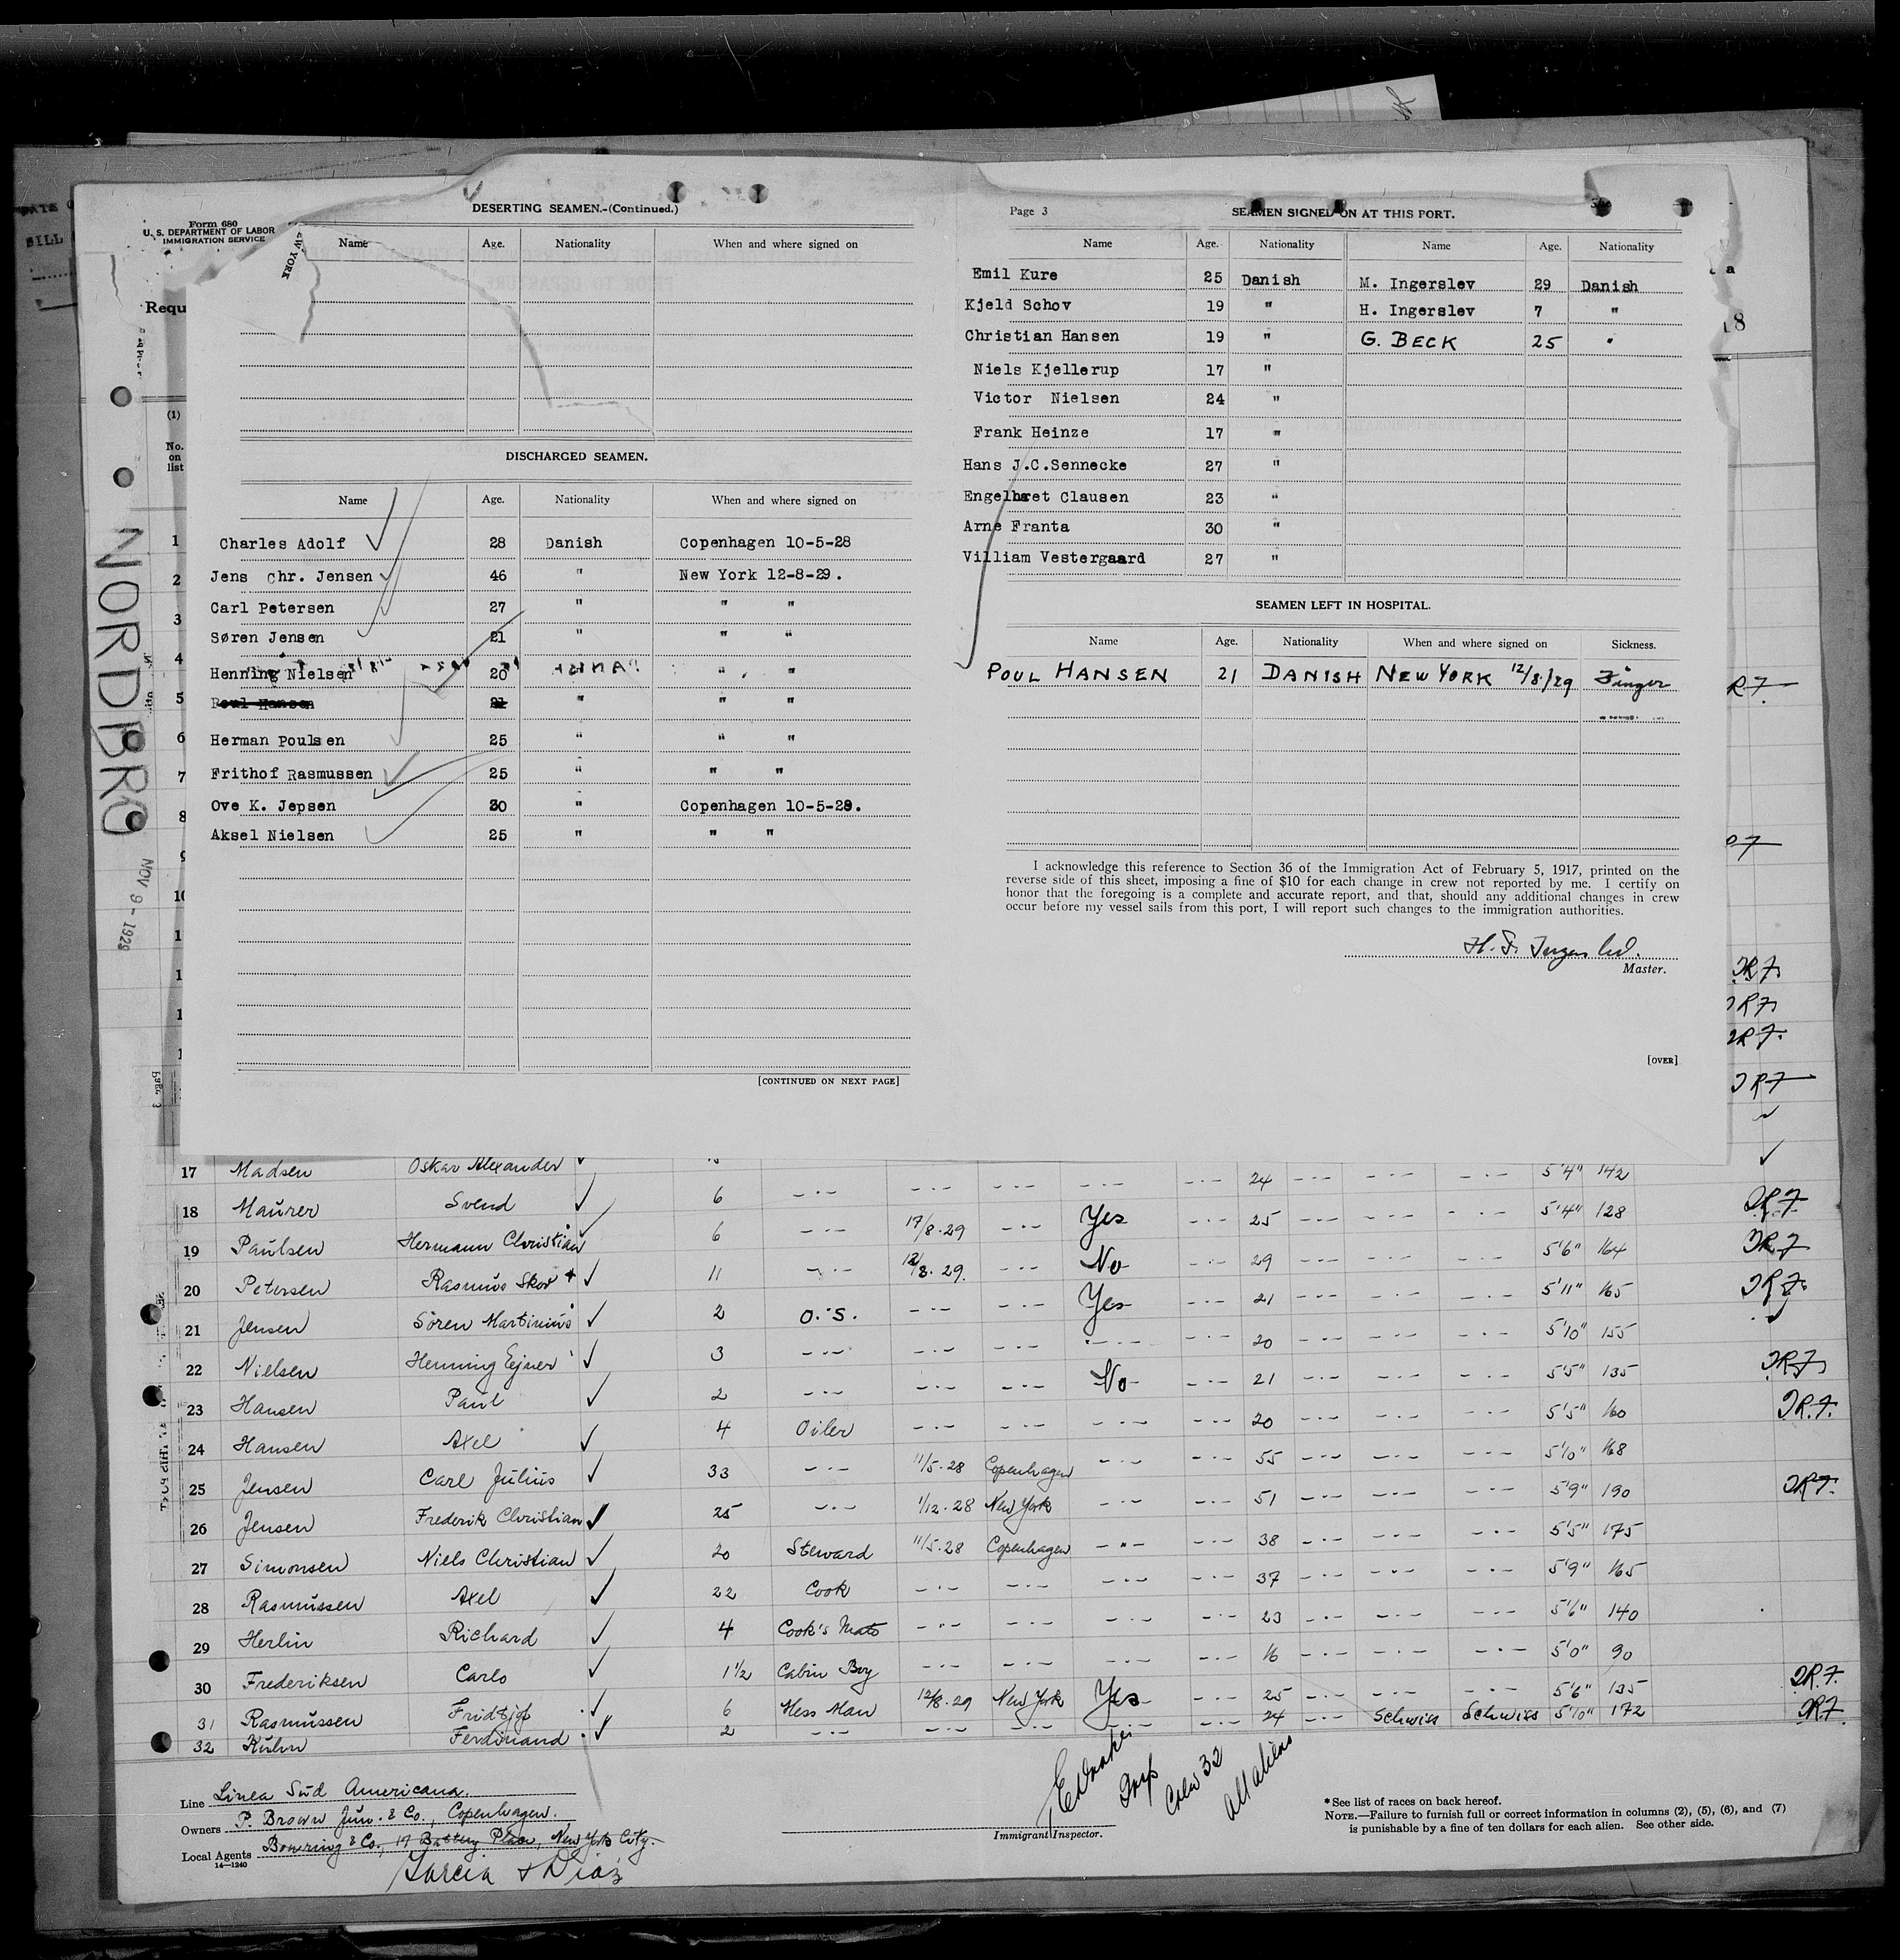 Form 680
U. S. DEPARTMENT OF LABOR
IMMIGRATION SERVICE
NORDBRO
NOV 9 - 1929
DESERTING SEAMEN.-(Continued.)
Name Age. Nationality When and where signed on
DISCHARGED SEAMEN.
Name Age. Nationality When and where signed on
Charles Adolf 28 Danish Copenhagen 10-5-28
Jens chr. Jensen 46 " New York 12-8-29.
Carl Petersen 27 " " "
Søren Jensen 21 " " "
Henning Nielsen 20 " "
Poul Hansen 21 " " "
Herman Poulsen 25 " " "
Frithof Rasmussen 25 " " "
Ove K. Jepsen 30 " Copenhagen 10-5-28.
Aksel Nielsen 25 " " "
[CONTINUED ON NEXT PAGE]
Page 3
SEAMEN SIGNED ON AT THIS PORT.
Name Age. Nationality Name Age. Nationality
Emil Kure 25 Danish M. Ingerslev 29 Danish
Kjeld Schov 19 " H. Ingerslev 7 "
Christian Hansen 19 " G. BECK 25 "
Niels Kjellerup 17 "
Victor Nielsen 24 "
Frank Heinze 17 "
Hans J.C.Sennecke 27 "
Clausen 23 "
Arne Franta 30 "
Villiam Vestergaard 27 "
SEAMEN LEFT IN HOSPITAL.
Name Age. Nationality When and where signed on Sickness.
POUL HANSEN 21 DANISH NEW YORK 12/8/29 Finger
I acknowledge this reference to Section 36 of the Immigration Act of February 5, 1917, printed on the
reverse side of this sheet, imposing a fine of $10 for each change in crew not reported by me. I certify on
honor that the foregoing is a complete and accurate report, and that, should any additional changes in crew
occur before my vessel sails from this port, I will report such changes to the immigration authorities.
Master.
[OVER]
Requ
(1)
No.
on
list
1
2
3
4
5
6
7
8
17 Madsen Oskar Alexander 24 5'4" 142
18 Maurer Svend 6 17/8-29 Yes 25 5'4" 128
19 Paulsen Hermann Christian 6 12/8-29. No 29 5'6" 164
20 Petersen Rasmus Skov 11 Yes 21 5'11" 165
21 Jensen Sören Martinius 2 O.S. 20 5'10" 155
22 Nielsen Henning Ejner 3 No 21 5'5" 135
23 Hansen Paul 2 20 5'5" 160
24 Hansen Axel 4 Oiler 55 5'10" 168
25 Jensen Carl Julius 33 11/5-28 Copenhagen 51 5'9" 190
26 Jensen Frederik Christian 25 1/12-28 New York 38 5'5" 175
27 Simonsen Niels Christian 20 Steward 11/5-28 Copenhagen 37 5'9" 165
28 Rasmussen Axel 22 Cook 23 5'6" 140
29 Herlin Richard 4 Cook's Mate 16 5'0" 90
30 Frederiksen Carlo 1½ Cabin Boy
31 Rasmussen Fridtjof 6 Mess Man 12/8-29 New York Yes 25 5'6" 135
32 Kuhn Ferdinand 2 24 Schwiss Schwiss 5'10" 172
Line Linea Sud Americana.
Owners P. Brown Jun. & Co., Copenhagen.
Local Agents Bowring & Co., 17 Battery Place, New York City.
14—1240
Garcia & Diaz
Crew 32
All aliens
Immigrant Inspector.
*See list of races on back hereof.
NOTE.—Failure to furnish full or correct information in columns (2), (5), (6), and (7)
is punishable by a fine of ten dollars for each alien. See other side.